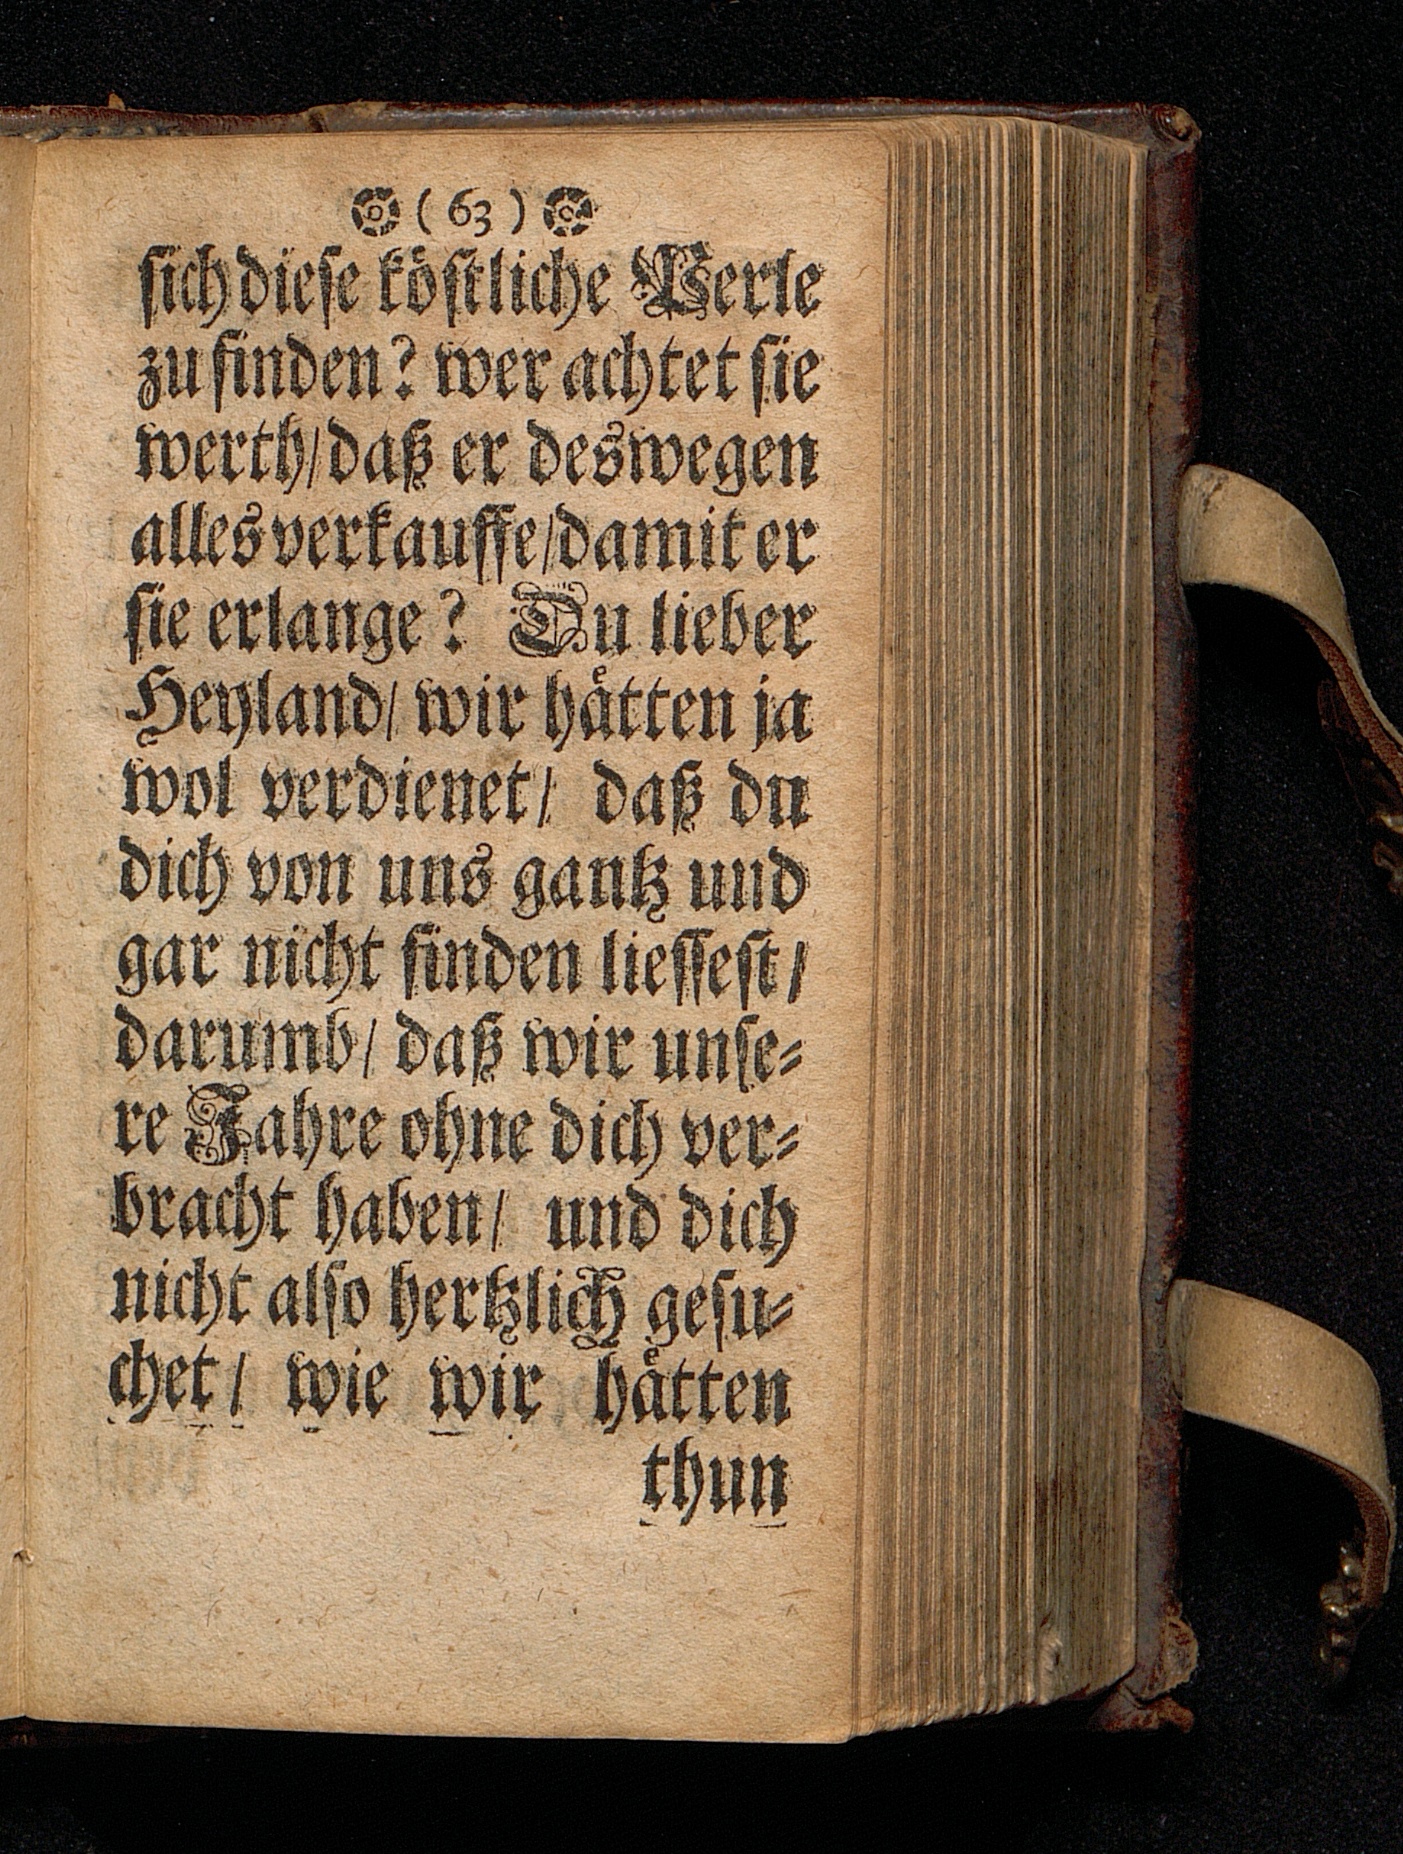 ( 63 )
ſich dieſe köſtliche Perle
zu finden? wer achtet ſie
werth/ daß er deswegen
alles verkauffe/ damit er
ſie erlange? Du lieber
Heyland/ wir haͤtten ja
wol verdienet/ daß du
dich von uns gantz und
gar nicht finden lieſſeſt/
darumb/ daß wir unſe⸗
re Jahre ohne dich ver⸗
bracht haben/ und dich
nicht alſo hertzlich geſu⸗
chet/ wie wir haͤtten
thun